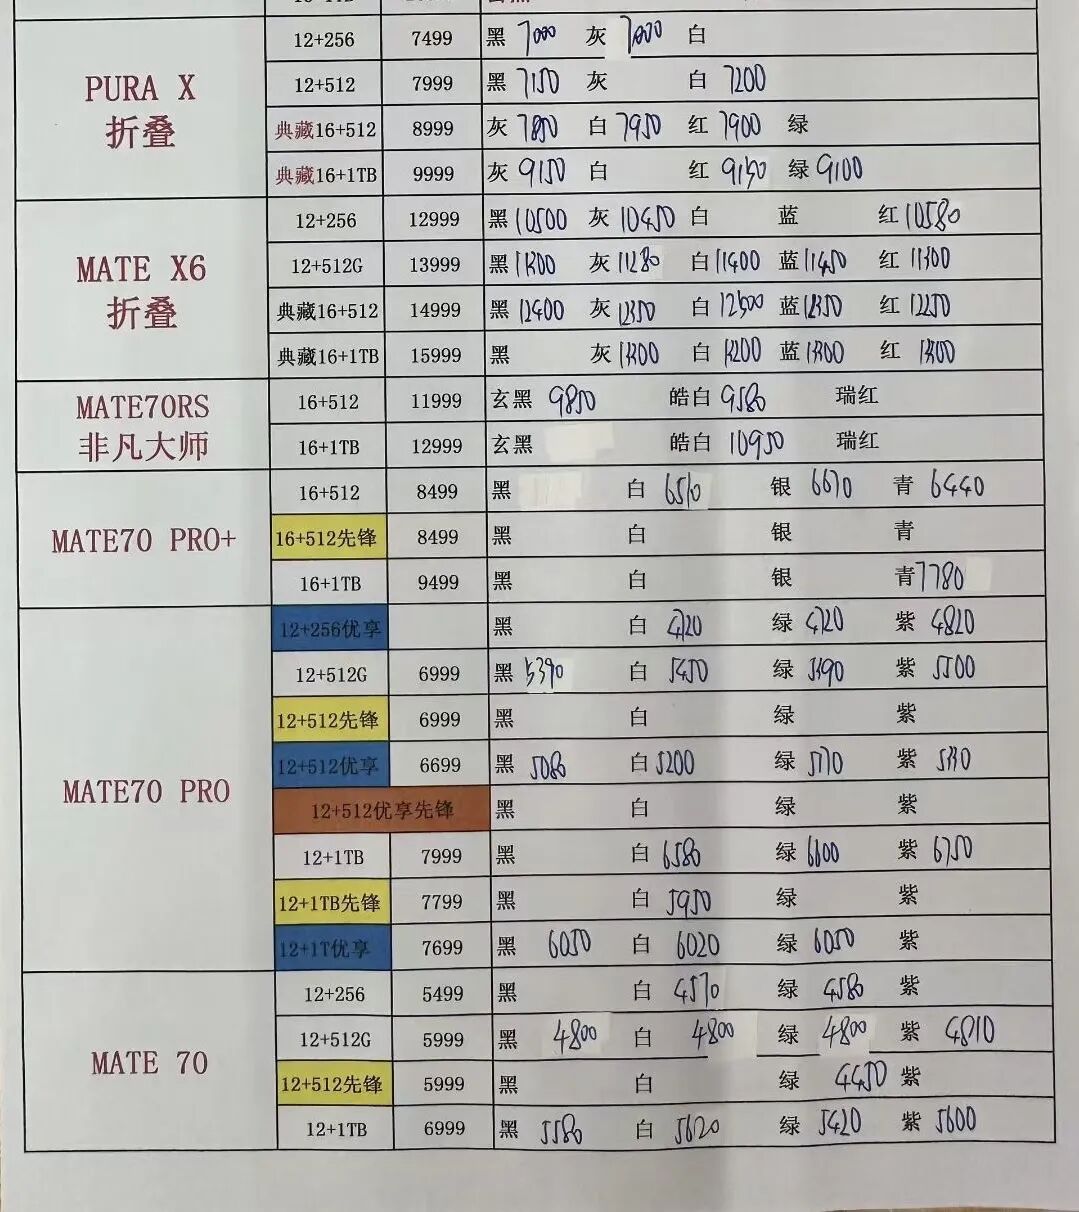 PURA X
折叠
12+256 7499 黑 7000 灰 7000 白
12+512 7999 黑 7150 灰 白 7200
典藏16+512 8999 灰 7850 白 7950 红 7900 绿
典藏16+1TB 9999 灰 9150 白 红 9150 绿 9100
MATE X6
折叠
12+256 12999 黑 10500 灰 10450 白 蓝 红 10580
12+512G 13999 黑 11300 灰 11280 白 11400 蓝 11450 红 11300
典藏16+512 14999 黑 12400 灰 12350 白 12500 蓝 12350 红 12250
典藏16+1TB 15999 黑 灰 13300 白 13200 蓝 13300 红 13300
MATE70RS
非凡大师
16+512 11999 玄黑 9850 皓白 9580 瑞红
16+1TB 12999 玄黑 皓白 10950 瑞红
MATE70 PRO+
16+512 8499 黑 白 6510 银 6670 青 6440
16+512先锋 8499 黑 白 银 青
16+1TB 9499 黑 白 银 青 7780
MATE70 PRO
12+256优享 黑 白 4720 绿 4720 紫 4820
12+512G 6999 黑 5390 白 5450 绿 5390 紫 5500
12+512先锋 6999 黑 白 绿 紫
12+512优享 6699 黑 5080 白 5200 绿 5170 紫
12+512优享先锋 黑 白 绿 紫
12+1TB 7999 黑 白 6580 绿 6600 紫 6750
12+1TB先锋 7799 黑 白 5950 绿 紫
12+1T优享 7699 黑 6050 白 6020 绿 6050 紫
MATE 70
12+256 5499 黑 白 4570 绿 4580 紫
12+512G 5999 黑 4800 白 4800 绿 4800 紫 4810
12+512先锋 5999 黑 白 绿 4450 紫
12+1TB 6999 黑 5580 白 5620 绿 5420 紫 5600